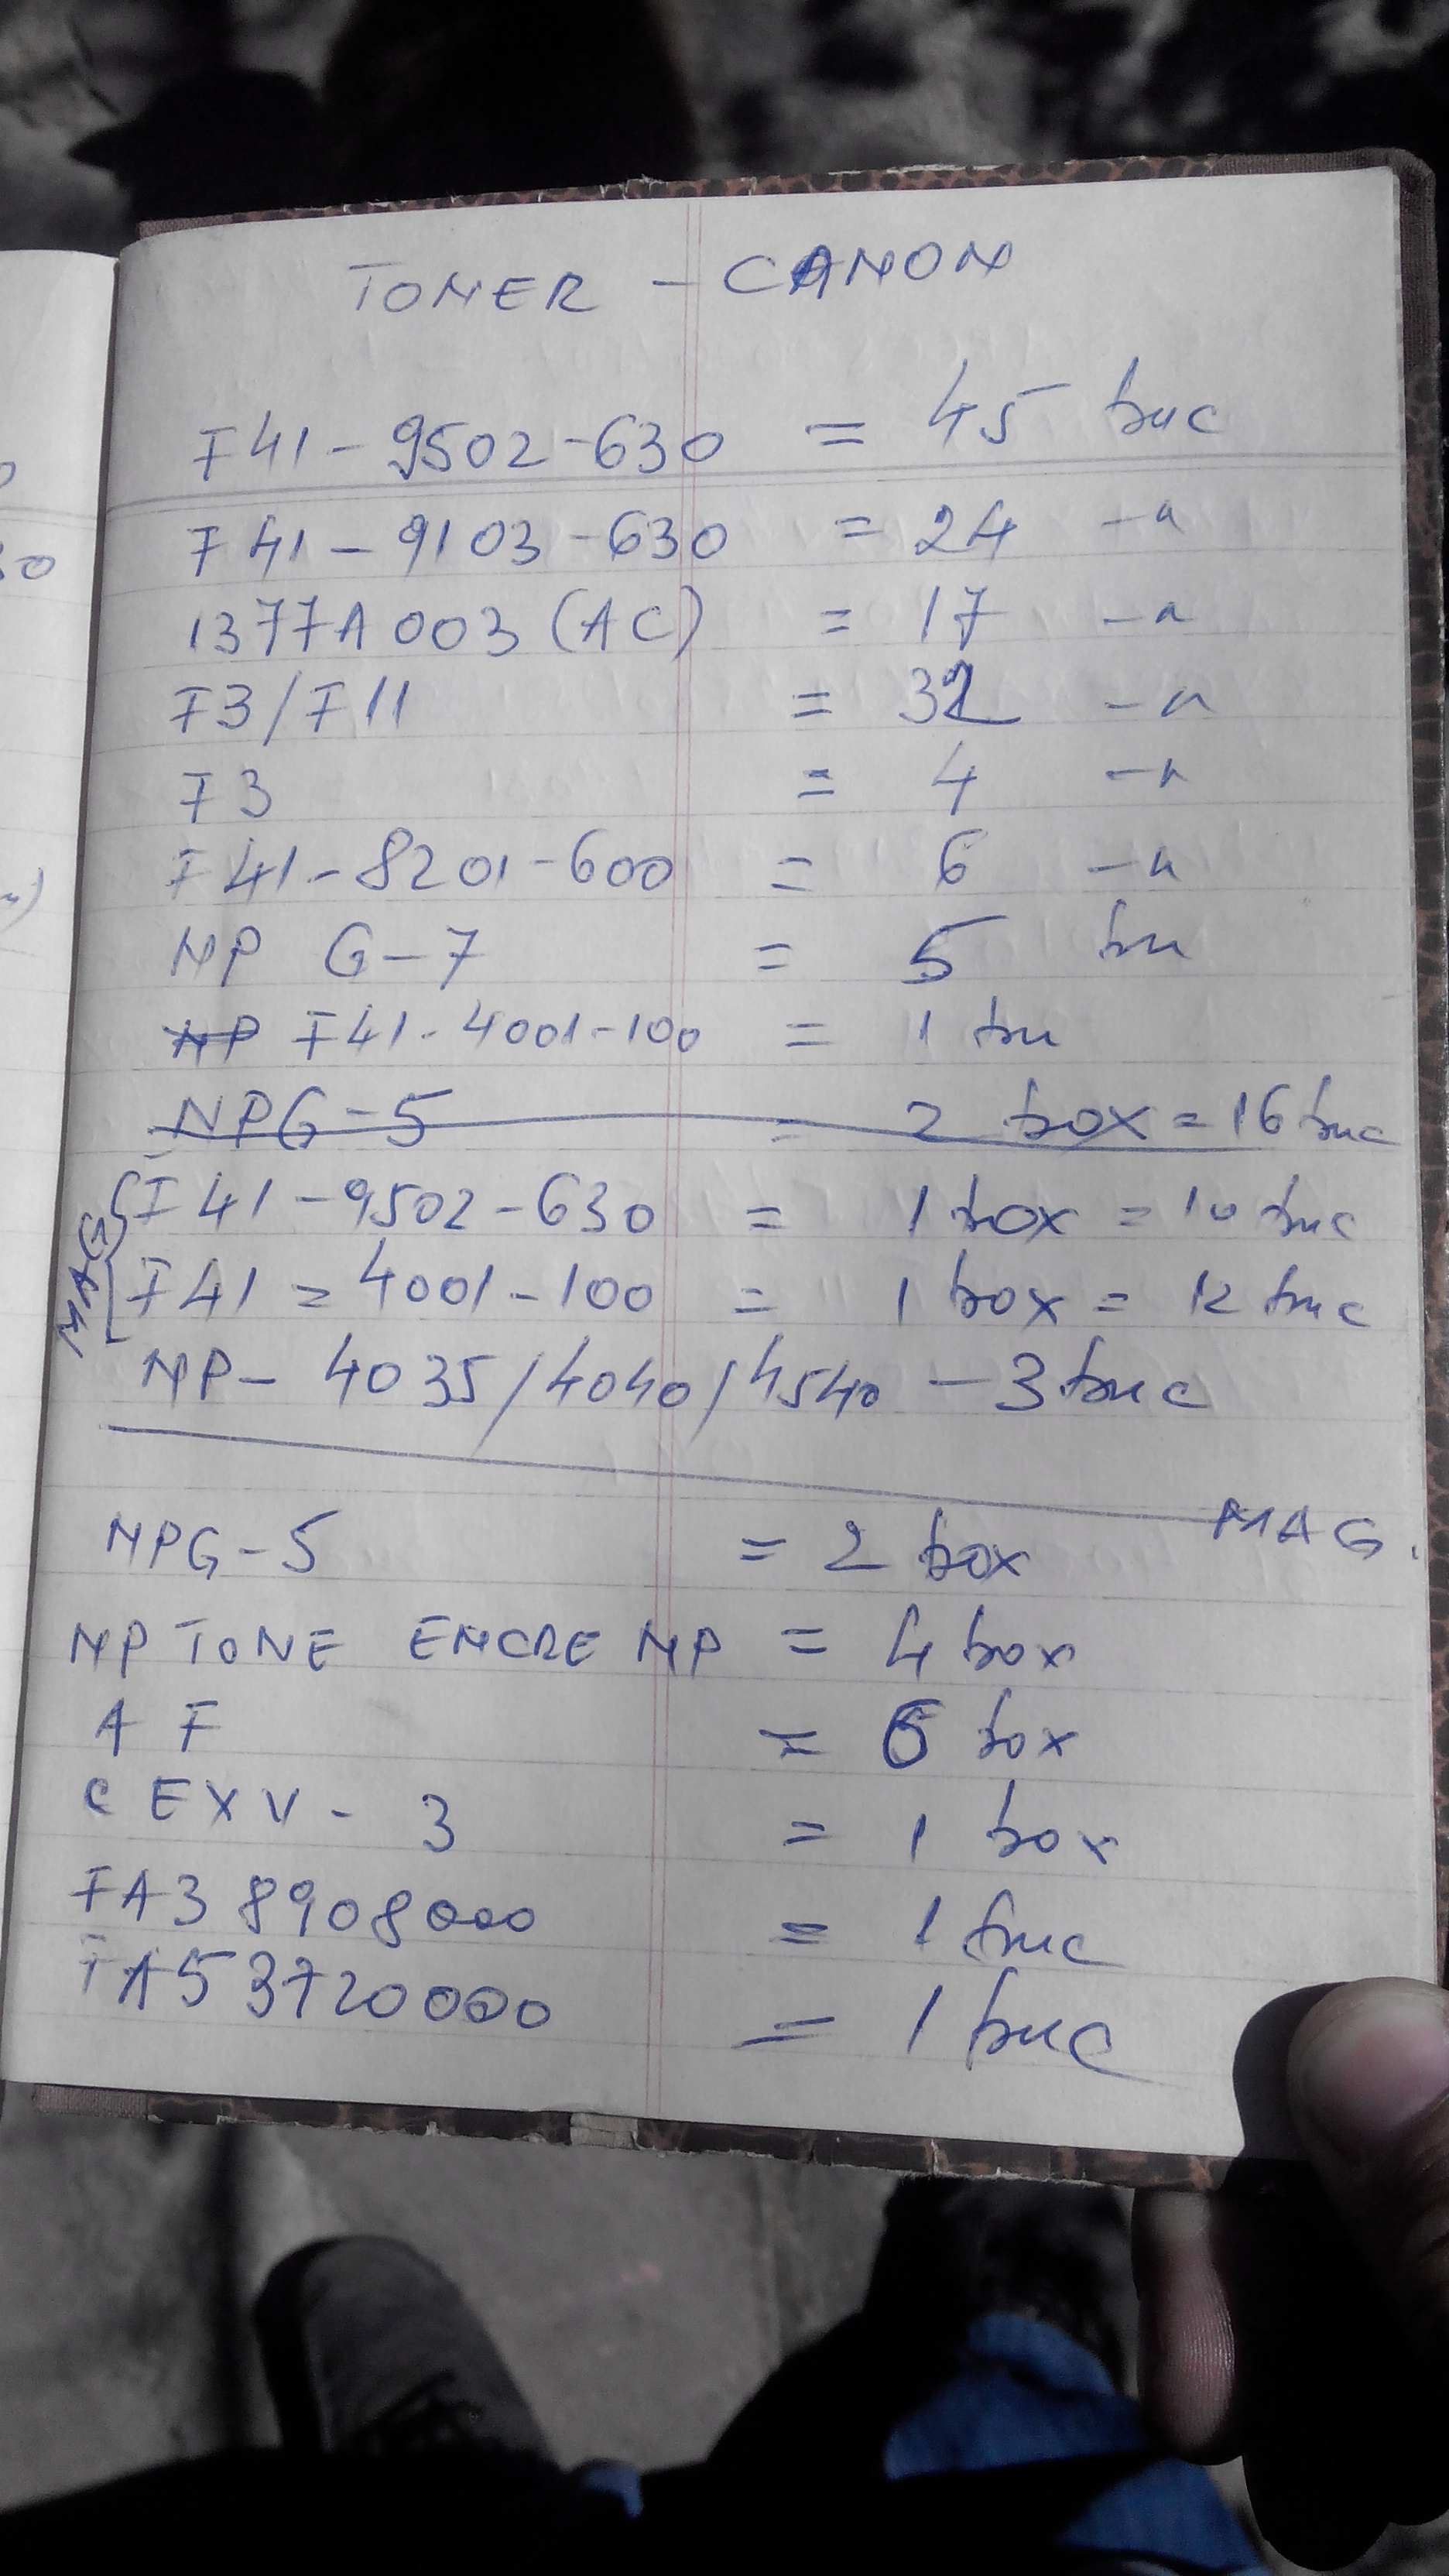 TONER - CANON
F41-9502-630 = 45 buc
F41-9103-630 = 24 -"
1377A003 (AC) = 17 -"
F3/F11 = 32 -"
F3 = 4 -"
F41-8201-600 = 6 -"
NP G-7 = 5 bu
NP F41-4001-100 = 1 bu
NPG-5 = 2 box = 16 buc
F41-9502-630 = 1 box = 10 buc
MAG
F41=4001-100 = 1 box = 12 buc
NP-4035/4040/4540 - 3 buc
MAG.
NPG-5 = 2 box
NP TONE ENCRE NP = 4 box
AF = box
C EXV-3 = 1 box
FA38908000 = 1 buc
FA53720000 = 1 buc